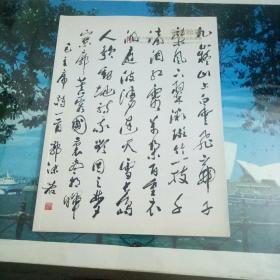 九嶷山上白雲飛帝子
乘風下翠微斑竹一枝千
滴淚紅霞萬朵百重衣
洞庭波涌連天雪長島
人歌動地詩我欲因之夢
寥廓芙蓉國裏盡朝暉
毛主席詩一首 郭沫若